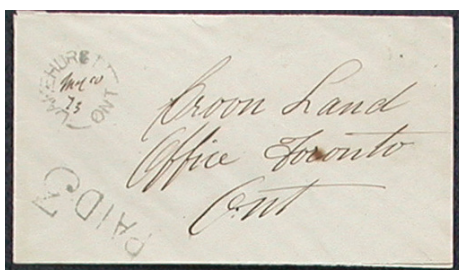 LAKEHURST ONT
23
PAID 3
Croon Land
Office Toronto
Ont